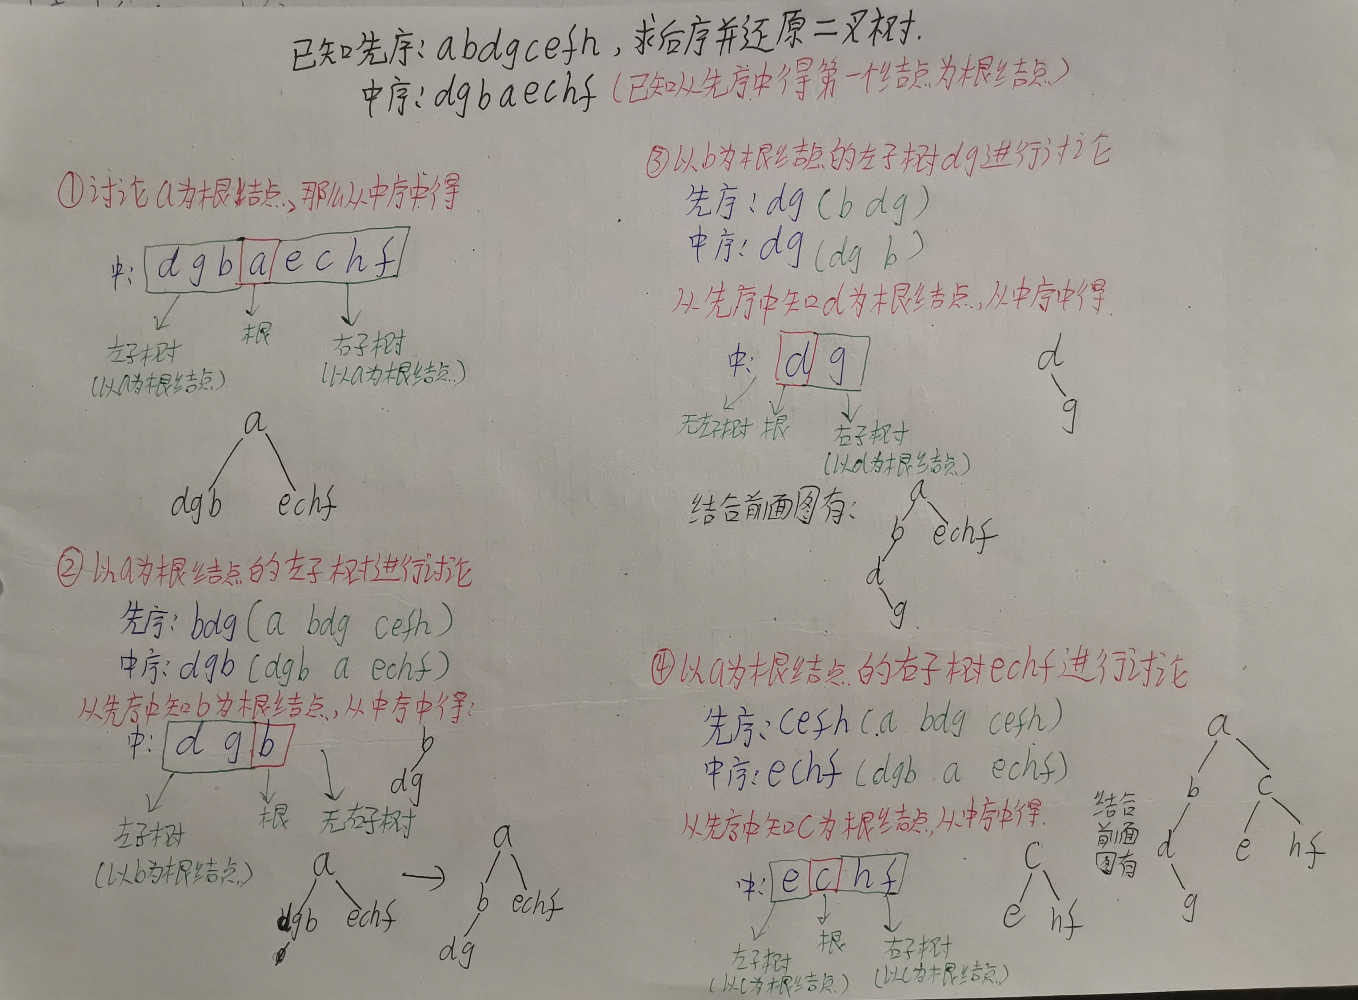 已知先序：abdgcefh，求后序并还原二叉树.
中序：dgbaechf（已知从先序中得第一个结点为根结点）
①讨论a为根结点，那么从中序中得
中：dgbaechf
左子树 根 右子树
（以a为根结点） （以a为根结点）
a
dgb echf
②以a为根结点的左子树进行讨论
先序：bdg（a bdg cefh）
中序：dgb（dgb a echf）
从先序中知b为根结点，从中序中得：
中：dgb
b
dg
左子树 根 无右子树
（以b为根结点）
a
dgb echf
a
b echf
dg
③以b为根结点的左子树dg进行讨论
先序：dg（b dg）
中序：dg（dg b）
从先序中知d为根结点，从中序中得.
中：dg
d
g
无左子树 根 右子树
（以d为根结点）
结合前面图有：
a
b echf
d
g
④以a为根结点的右子树echf进行讨论
先序：cefh（a bdg cefh）
中序：echf（dgb a echf）
从先序中知c为根结点，从中序中得.
中：echf
左子树 根 右子树
（以c为根结点） （以c为根结点）
c
e hf
结合
前面
图有
a
b c
d e hf
g